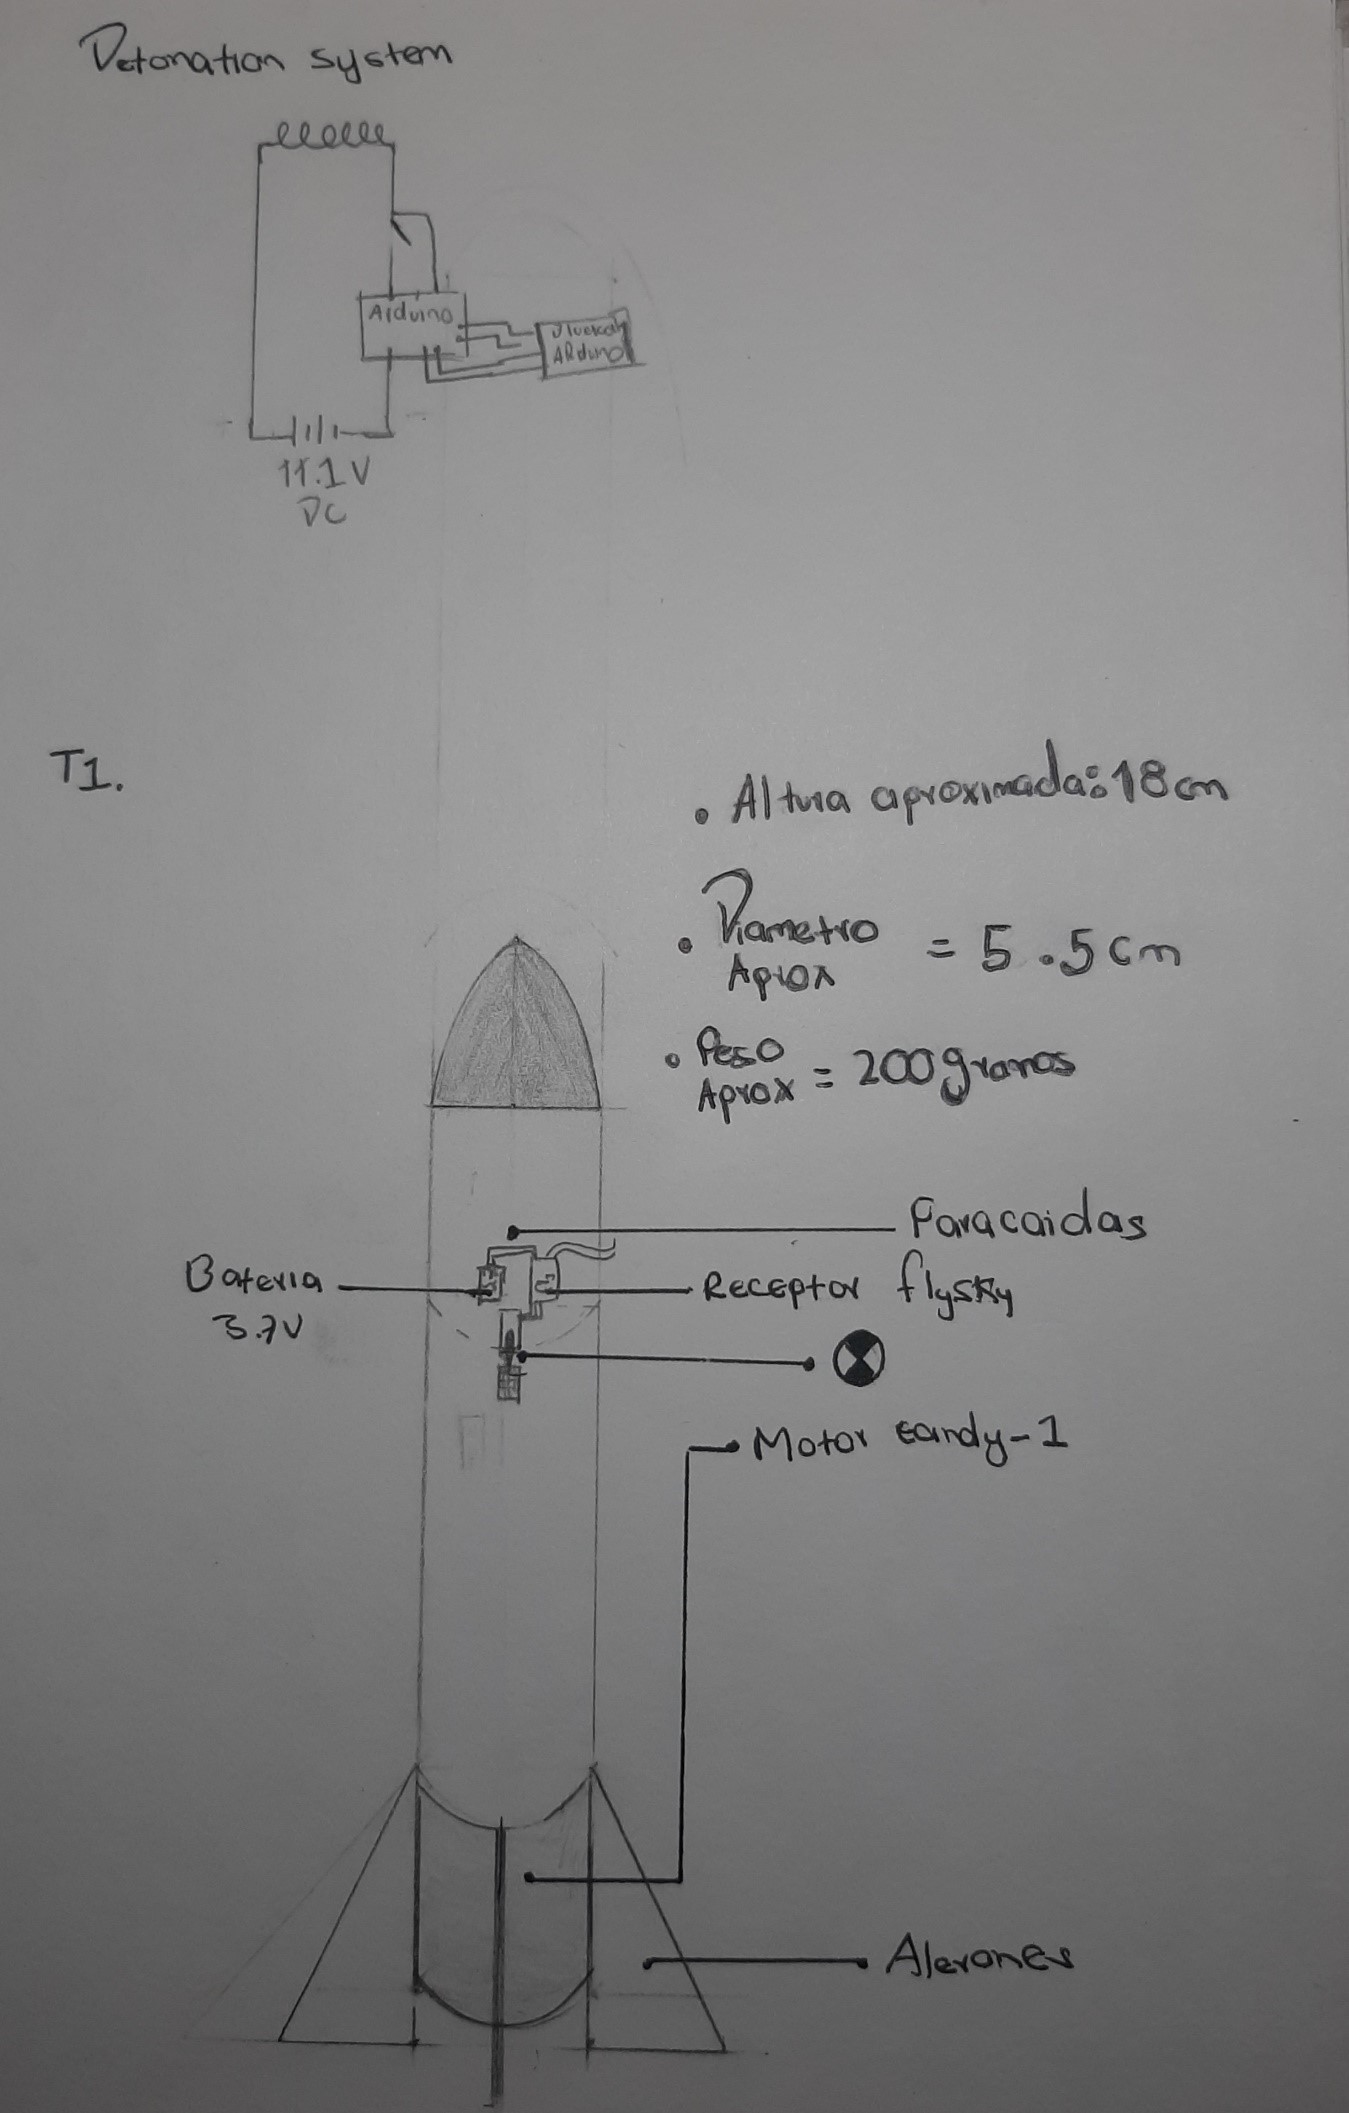 Detonation system
Arduino
ARduino
11.1V
DC
T1.
• Altura aproximada: 18cm
• Diametro
Aprox = 5.5cm
• Peso
Aprox = 200gramos
Paracaidas
Bateria
3.7V
Receptor flysky
• Motor candy-1
Alerones